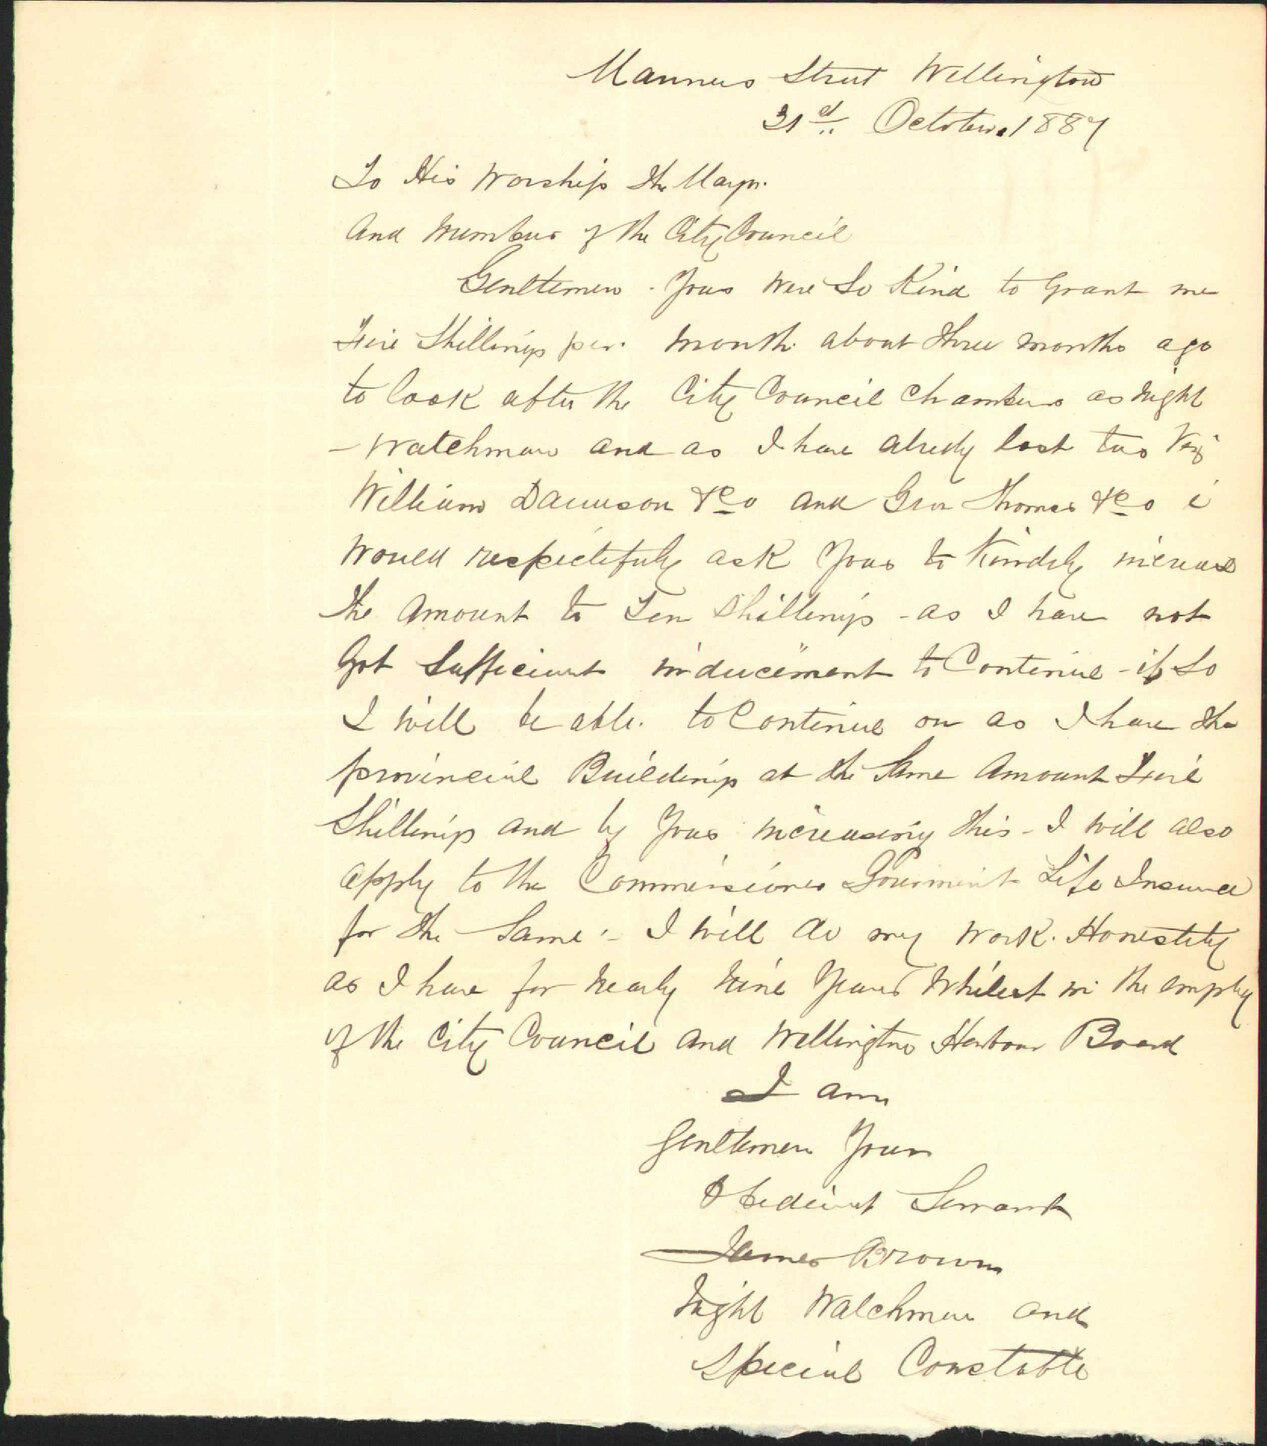 Manners Street Wellington
31st October 1887
To His Worship The Mayor.
And members of the City Council
Gentlemen - You were So Kind to Grant me
Five Shillings per. month about three months ago
to look after the City Council Chambers as Night
- Watchman and as I have alredy lost two Viz
William Dawson & Co and Geor Thomas & Co i
Would respectfully ask You to Kindly increase
the Amount to Ten Shillings - as I have not
Got Sufficient inducement to Continue - if So
I will be able. to Continue on as I have the
provincial Buildings at the Same Amount Five
Shillings and by You increasing this - I will also
apply to the Commissioner Government Life Insurance
for the Same - I will do my work. Honestly
as I have for Nearly Nine Years Whilest in the employ
of the City Council and Wellington Harbour Board
I am
Gentlemen Your
Obedient Servant
James Brown
Night Watchman and
Special Constable